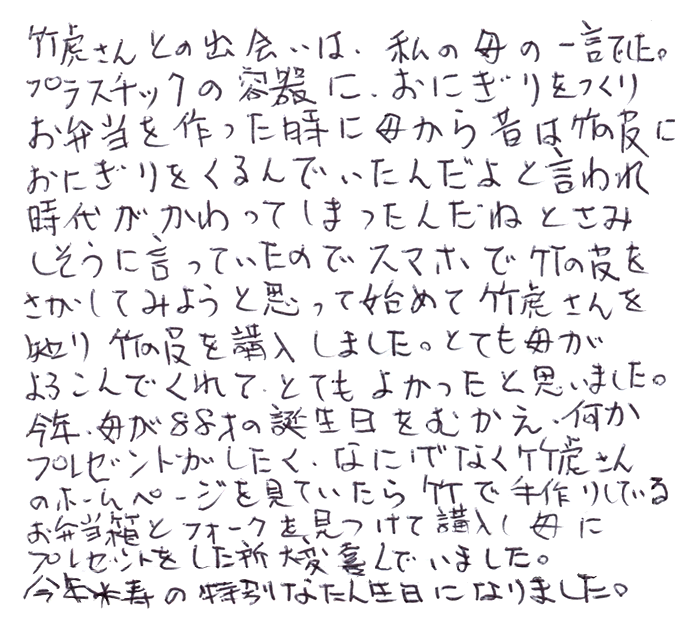 竹虎さんとの出会いは、私の母の一言でした。
プラスチックの容器に、おにぎりをつくり
お弁当を作った時に母から昔は竹の皮に
おにぎりをくるんでいたんだよと言われ
時代がかわってしまったんだねとさみ
しそうに言っていたのでスマホで竹の皮を
さがしてみようと思って始めて竹虎さんを
知り竹の皮を購入しました。とても母が
よろこんでくれて、とてもよかったと思いました。
今年、母が88才の誕生日をむかえ、何か
プレゼントがしたく、なにげなく竹虎さん
のホームページを見ていたら竹で手作りしている
お弁当箱とフォークを見つけて購入し母に
プレゼントをした所大変喜んでいました。
今年米寿の特別なたん生日になりました。